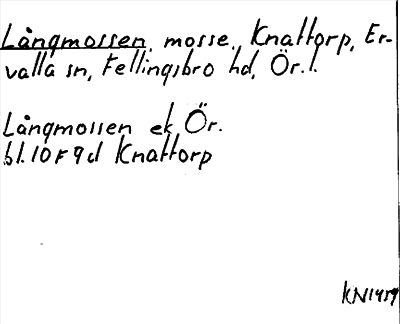 Långmossen, mosse, Knattorp, Er-
valla sn, Fellingsbro hd, Ör.l.
Långmossen ek Ör.
bl.10F9d Knattorp